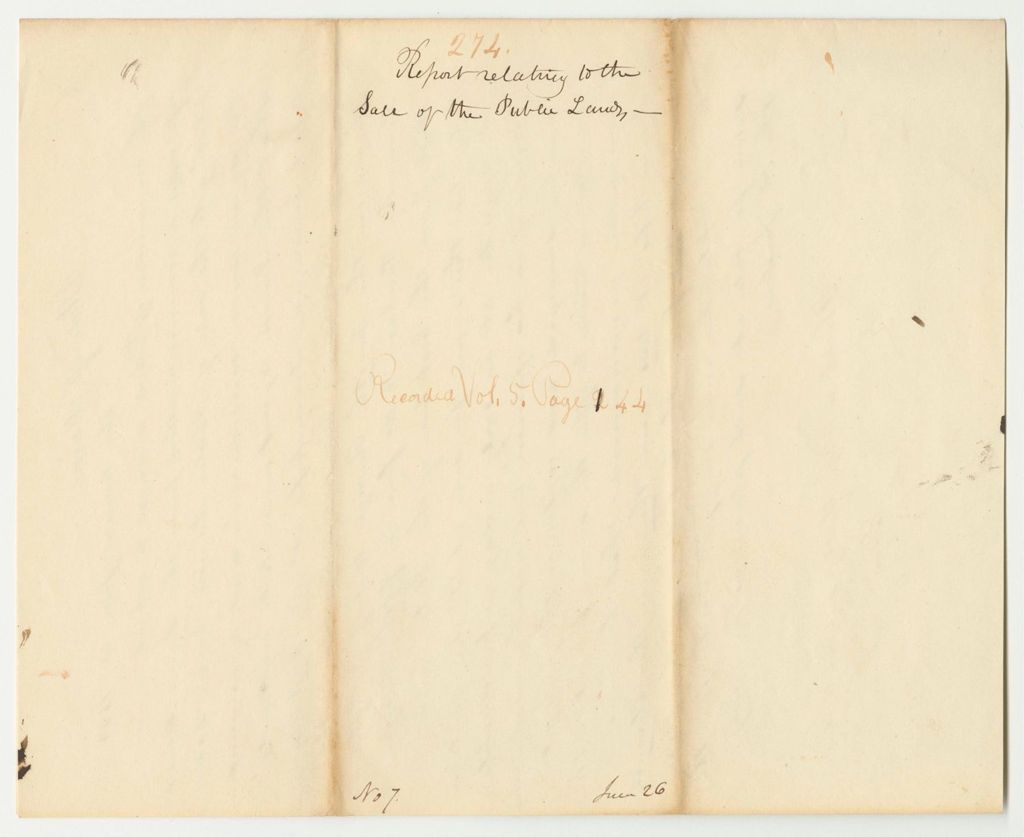 274.
Report relating to the
Sale of the Public Lands,—
Recorded Vol. 5. Page 144
No 7.
June 26